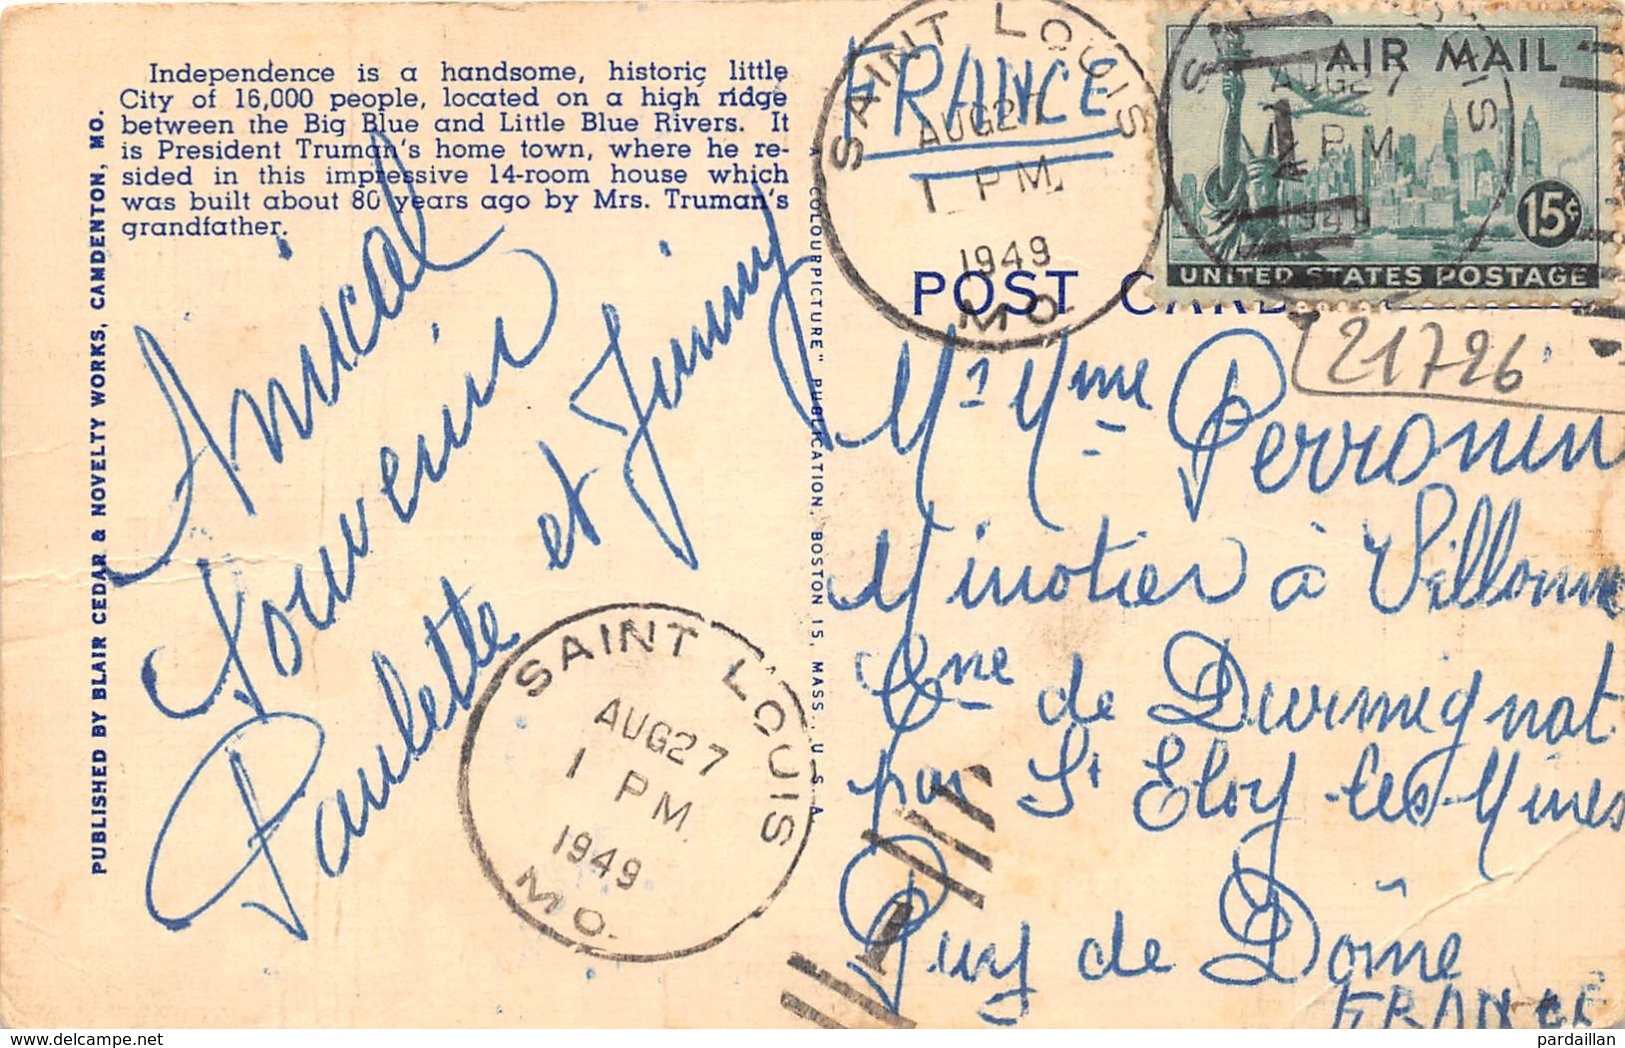 Independence is a handsome, historic little
City of 16,000 people, located on a high ridge
between the Big Blue and Little Blue Rivers. It
is President Truman's home town, where he re-
sided in this impressive 14-room house which
was built about 80 years ago by Mrs. Truman's
grandfather.
PUBLISHED BY BLAIR CEDAR & NOVELTY WORKS, CAMDENTON, MO.
Amical
Souvenir
Paulette et Jimmy
SAINT LOUIS
AUG 27
1 PM
1949
MO.
A "COLOURPICTURE" PUBLICATION, BOSTON 15, MASS., U.S.A.
FRANCE
SAINT LOUIS
AUG 27
1 PM
1949
MO.
POST CARD
AIR MAIL
15¢
UNITED STATES POSTAGE
AUG 27
1 PM
1949
21726
Mr Mme Perronin
Minotier à Villonne
Cne de Durmignat
par St Eloy-les-Mines
Puy de Dôme
FRANCE
www.delcampe.net
pardaillan